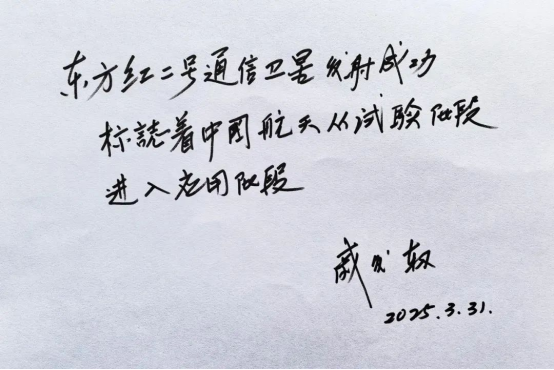 东方红二号通信卫星发射成功
标誌着中国航天从试验阶段
进入应用阶段
戚发轫
2025.3.31.